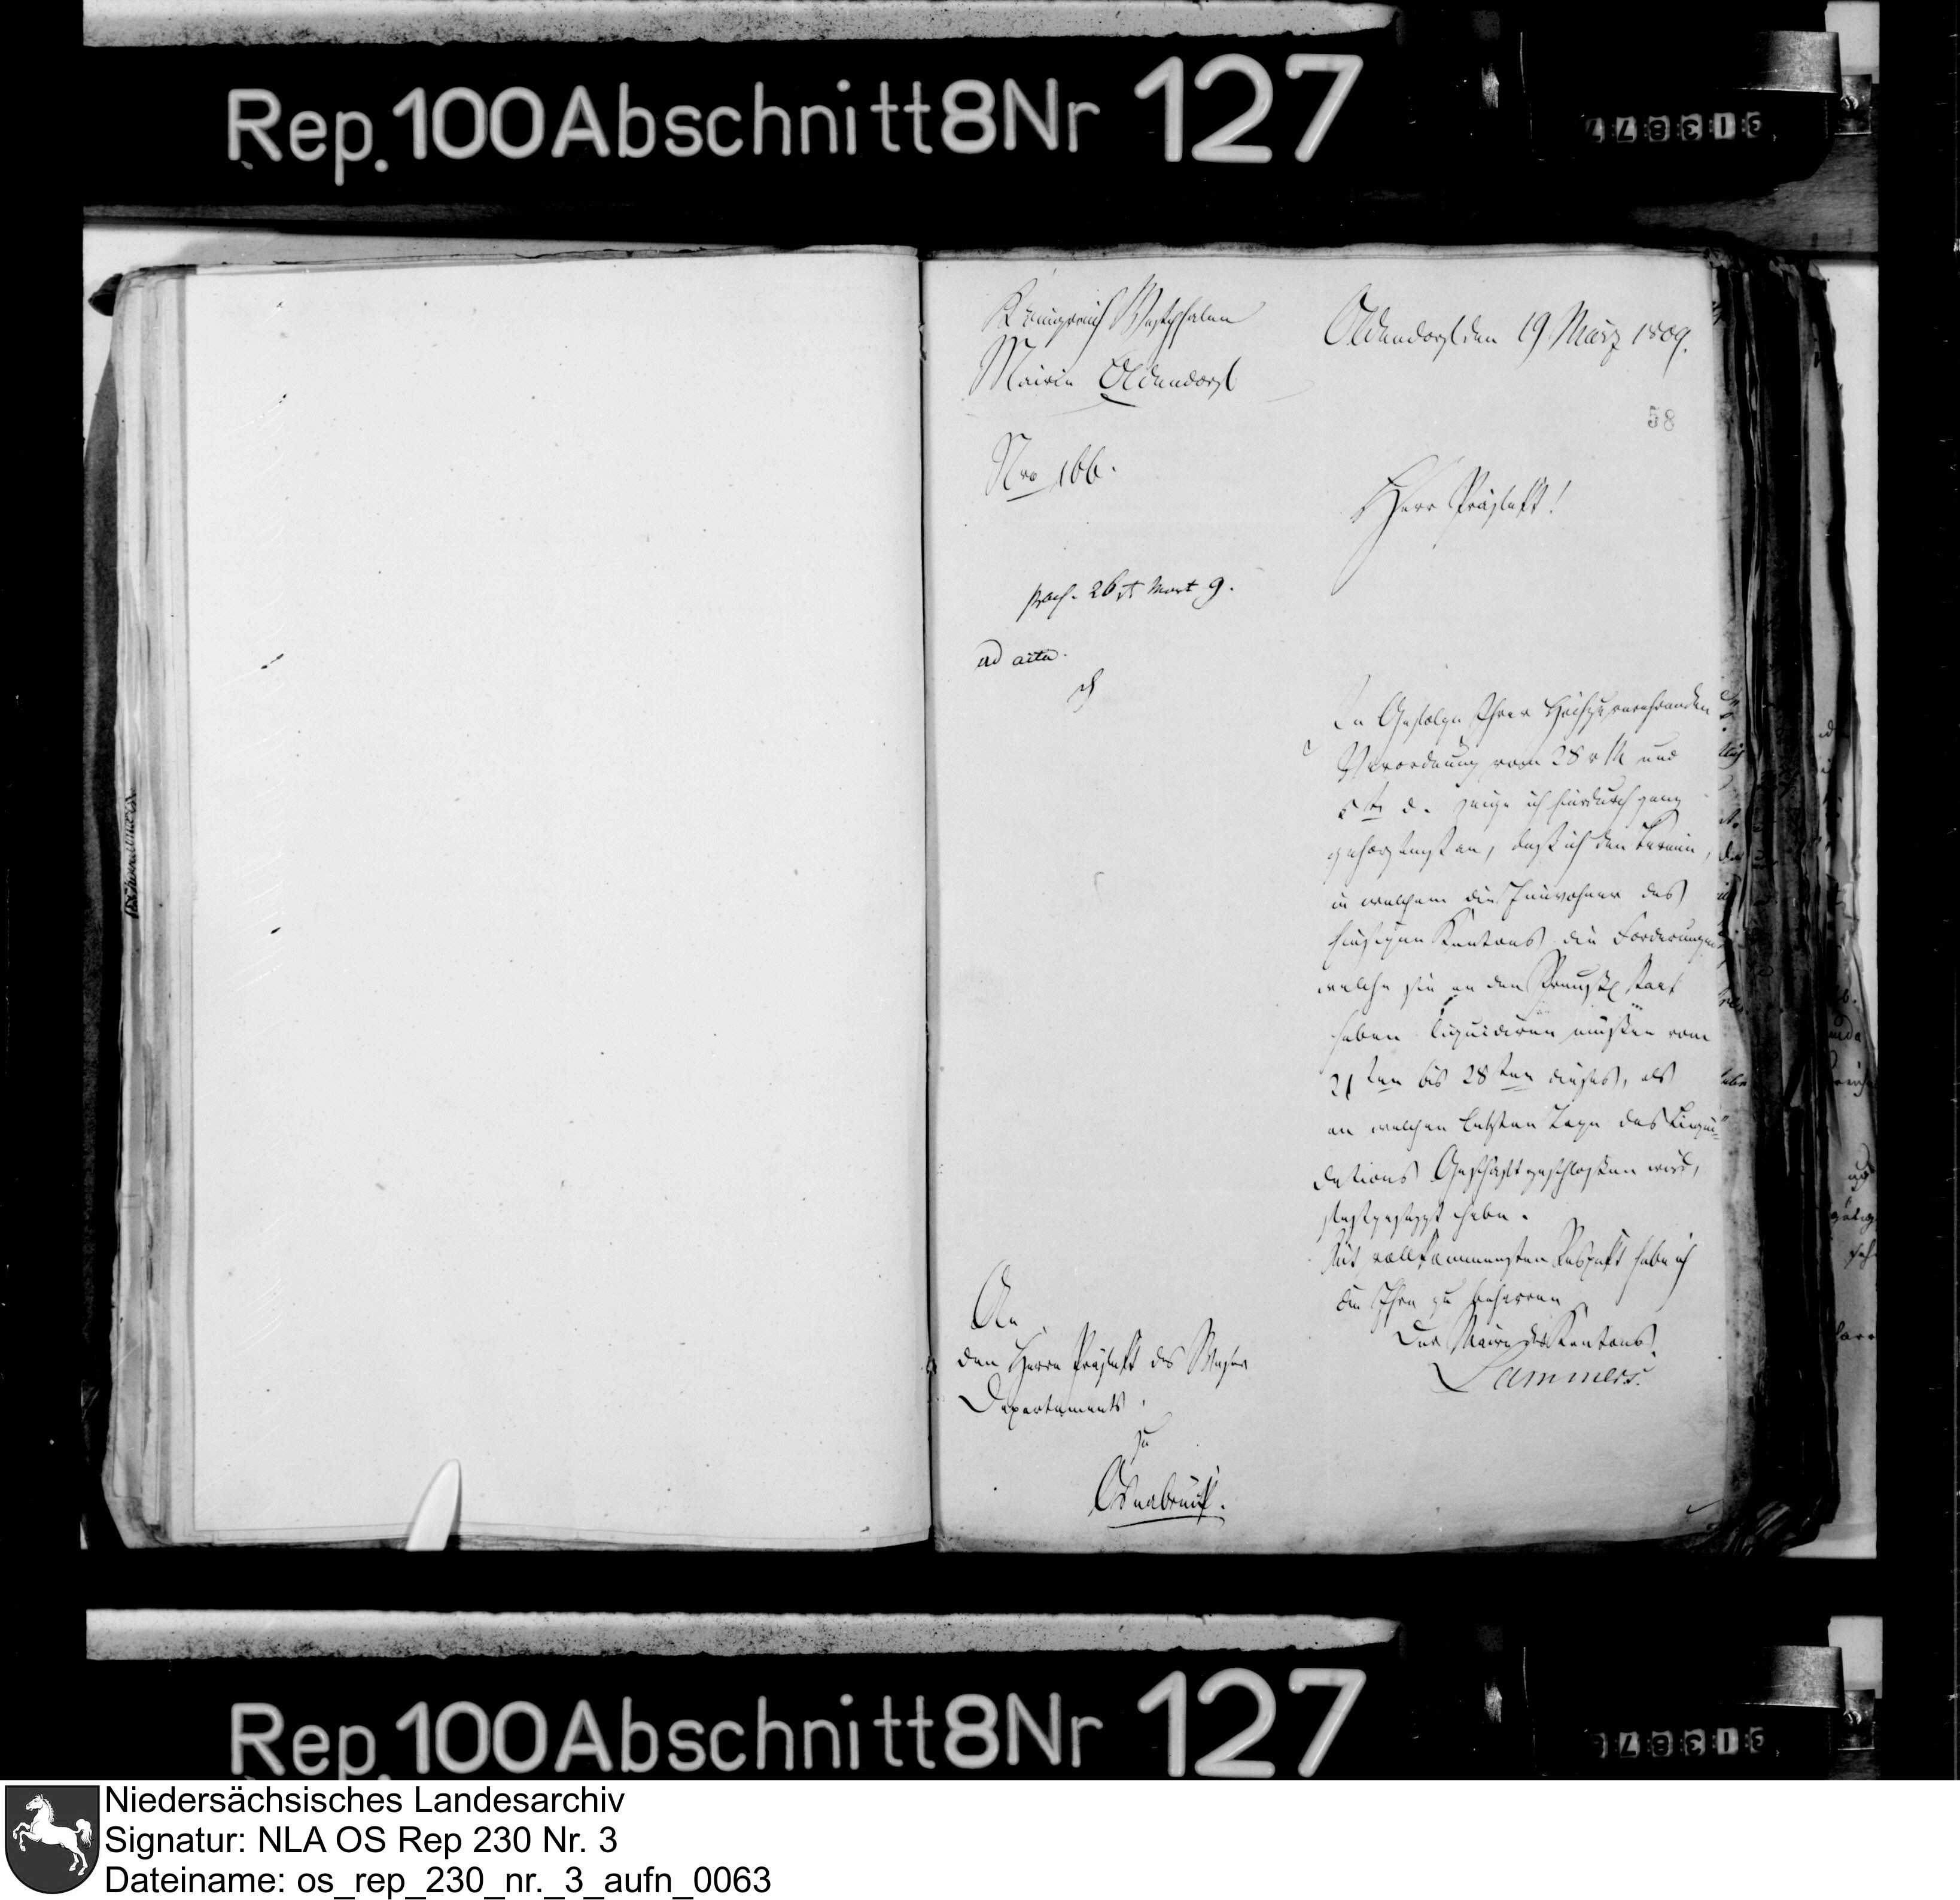 Rep. 100 Abschnitt 8 Nr 127
Königreich Westphalen
Mairie Oldendorf
Oldendorf den 19 März 1809.
58
Nro 166.
Herr Präfekt!
26 Mart 9.
ad acta.
In Gefolge Ihrer Hochzuverehrenden
Verordnung vom 28 v M und
d. zeige ich hierdurch ganz
gehorsamst an, daß ich den Termin,
in welchem die Einwohner des
hiesigen Kantons die Forderungen
welche sie an den Preußl Staat
haben liquidiren müßen vom
21ten bis 28ten dieses, als
an welchen letzten Tage das Liqui-
dations Geschäft geschloßen wird,
festgesezt habe.
Mit vollkommensten Respekt habe ich
die Ehre zu beharren
Der Maire des Kantons.
Lammers.
An
den Herrn Präfekt des Weser
Departements
zu
Osnabrück.
Rep. 100 Abschnitt 8 Nr 127
Niedersächsisches Landesarchiv
Signatur: NLA OS Rep 230 Nr. 3
Dateiname: os_rep_230_nr._3_aufn_0063